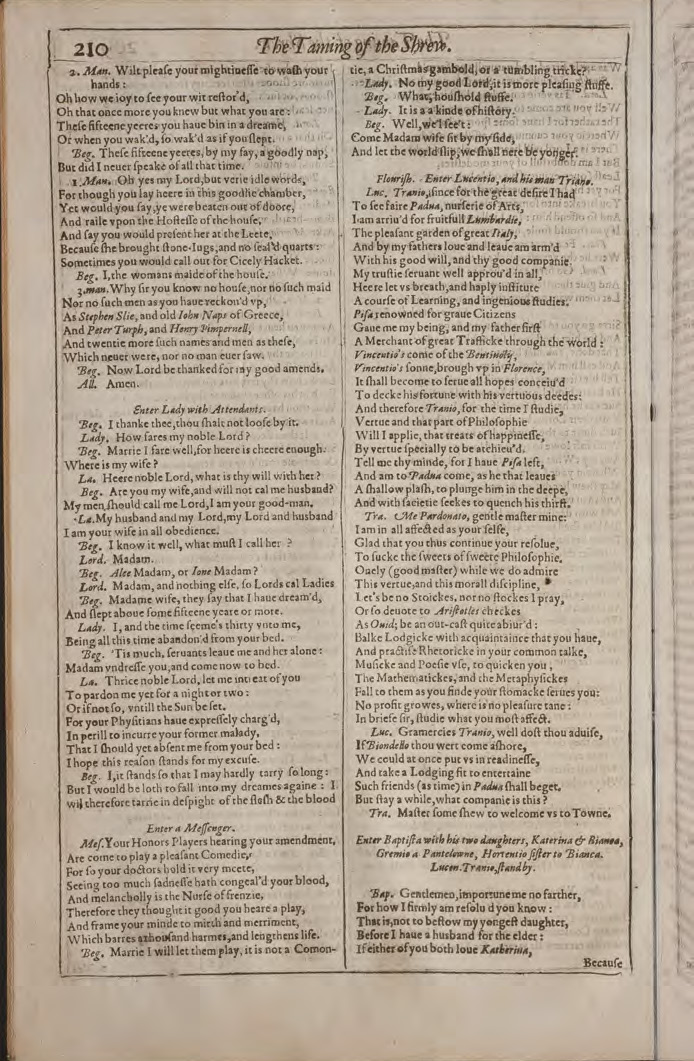 210
The Taming of the Shrew.
2. Man. Wilt pleaſe your mightineſſe to waſh your
hands:
Oh how we ioy to ſee your wit reſtor'd,
Oh that once more you knew but what you are:
Theſe fifteene yeeres you haue bin in a dreame,
Or when you wak'd, ſo wak'd as if you ſlept.
Beg. Theſe fifteene yeeres, by my fay, a goodly nap,
But did I neuer ſpeake of all that time.
1. Man. Oh yes my Lord, but verie idle words,
For though you lay heere in this goodlie chamber,
Yet would you ſay, ye were beaten out of doore,
And raile vpon the Hoſteſſe of the houſe,
And ſay you would preſent her at the Leete,
Becauſe ſhe brought ſtone-Iugs, and no ſeal'd quarts:
Sometimes you would call out for Cicely Hacket.
Beg. I, the womans maide of the houſe.
3. man. Why ſir you know no houſe, nor no ſuch maid
Nor no ſuch men as you haue reckon'd vp,
As Stephen Slie, and old Iohn Naps of Greece,
And Peter Turph, and Henry Pimpernell,
And twentie more ſuch names and men as theſe,
Which neuer were, nor no man euer ſaw.
Beg. Now Lord be thanked for my good amends.
All. Amen.
Enter Lady with Attendants.
Beg. I thanke thee, thou ſhalt not looſe by it.
Lady. How fares my noble Lord?
Beg. Marrie I fare well, for heere is cheere enough.
Where is my wife?
La. Heere noble Lord, what is thy will with her?
Beg. Are you my wife, and will not cal me husband?
My men ſhould call me Lord, I am your good-man.
La. My husband and my Lord, my Lord and husband
I am your wife in all obedience.
Beg. I know it well, what muſt I call her?
Lord. Madam.
Beg. Alce Madam, or Ione Madam?
Lord. Madam, and nothing elſe, ſo Lords cal Ladies
Beg. Madame wife, they ſay that I haue dream'd,
And ſlept aboue ſome fifteene yeare or more.
Lady. I, and the time ſeeme's thirty vnto me,
Being all this time abandon'd from your bed.
Beg. 'Tis much, ſeruants leaue me and her alone:
Madam vndreſſe you, and come now to bed.
La. Thrice noble Lord, let me intreat of you
To pardon me yet for a night or two:
Or if not ſo, vntill the Sun be ſet.
For your Phyſitians haue expreſſely charg'd,
In perill to incurre your former malady,
That I ſhould yet abſent me from your bed:
I hope this reaſon ſtands for my excuſe.
Beg. I, it ſtands ſo that I may hardly tarry ſo long:
But I would be loth to fall into my dreames againe: I
wil therefore tarrie in deſpight of the fleſh & the blood
Enter a Meſſenger.
Meſ. Your Honors Players hearing your amendment,
Are come to play a pleaſant Comedie,
For ſo your doctors hold it very meete,
Seeing too much ſadneſſe hath congeal'd your blood,
And melancholly is the Nurſe of frenzie,
Therefore they thought it good you heare a play,
And frame your minde to mirth and merriment,
Which barres a thouſand harmes, and lengthens life.
Beg. Marrie I will let them play, it is not a Comon-
tie, a Chriſtmas gambold, or a tumbling tricke?
Lady. No my good Lord, it is more pleaſing ſtuffe.
Beg. What, houſhold ſtuffe.
Lady. It is a a kinde of hiſtory.
Beg. Well, we'l ſee't:
Come Madam wife ſit by my ſide,
And let the world ſlip, we ſhall nere be yonger.
Flouriſh. Enter Lucentio, and his man Triano.
Luc. Tranio, ſince for the great deſire I had
To ſee faire Padua, nurſerie of Arts,
I am arriu'd for fruitfull Lumbardie,
The pleaſant garden of great Italy,
And by my fathers loue and leaue am arm'd
With his good will, and thy good companie.
My truſtie ſeruant well approu'd in all,
Heere let vs breath, and haply inſtitute
A courſe of Learning, and ingenious ſtudies.
Piſa renowned for graue Citizens
Gaue me my being, and my father firſt
A Merchant of great Trafficke through the world:
Vincentio's come of the Bentiuolij,
Vincentio's ſonne, brough vp in Florence,
It ſhall become to ſerue all hopes conceiu'd
To decke his fortune with his vertuous deedes:
And therefore Tranio, for the time I ſtudie,
Vertue and that part of Philoſophie
Will I applie, that treats of happineſſe,
By vertue ſpecially to be atchieu'd.
Tell me thy minde, for I haue Piſa left,
And am to Padua come, as he that leaues
A ſhallow plaſh, to plunge him in the deepe,
And with ſacietie ſeekes to quench his thirſt.
Tra. Me Pardonato, gentle maſter mine:
I am in all affected as your ſelfe,
Glad that you thus continue your reſolue,
To ſucke the ſweets of ſweete Philoſophie.
Onely (good maſter) while we do admire
This vertue, and this morall diſcipline,
Let's be no Stoickes, nor no ſtockes I pray,
Or ſo deuote to Ariſtotles checkes
As Ouid; be an out-caſt quite abiur'd:
Balke Lodgicke with acquaintaince that you haue,
And practiſe Rhetoricke in your common talke,
Muſicke and Poeſie vſe, to quicken you,
The Mathematickes, and the Metaphyſickes
Fall to them as you finde your ſtomacke ſerues you:
No profit growes, where is no pleaſure tane:
In briefe ſir, ſtudie what you moſt affect.
Luc. Gramercies Tranio, well doſt thou aduiſe,
If Biondello thou wert come aſhore,
We could at once put vs in readineſſe,
And take a Lodging fit to entertaine
Such friends (as time) in Padua ſhall beget.
But ſtay a while, what companie is this?
Tra. Maſter ſome ſhew to welcome vs to Towne.
Enter Baptiſta with his two daughters, Katerina & Bianca,
Gremio a Pantelowne, Hortentio ſiſter to Bianca.
Lucen. Tranio, ſtand by.
Bap. Gentlemen, importune me no farther,
For how I firmly am reſolu'd you know:
That is, not to beſtow my yongeſt daughter,
Before I haue a husband for the elder:
If either of you both loue Katherina,
Becauſe